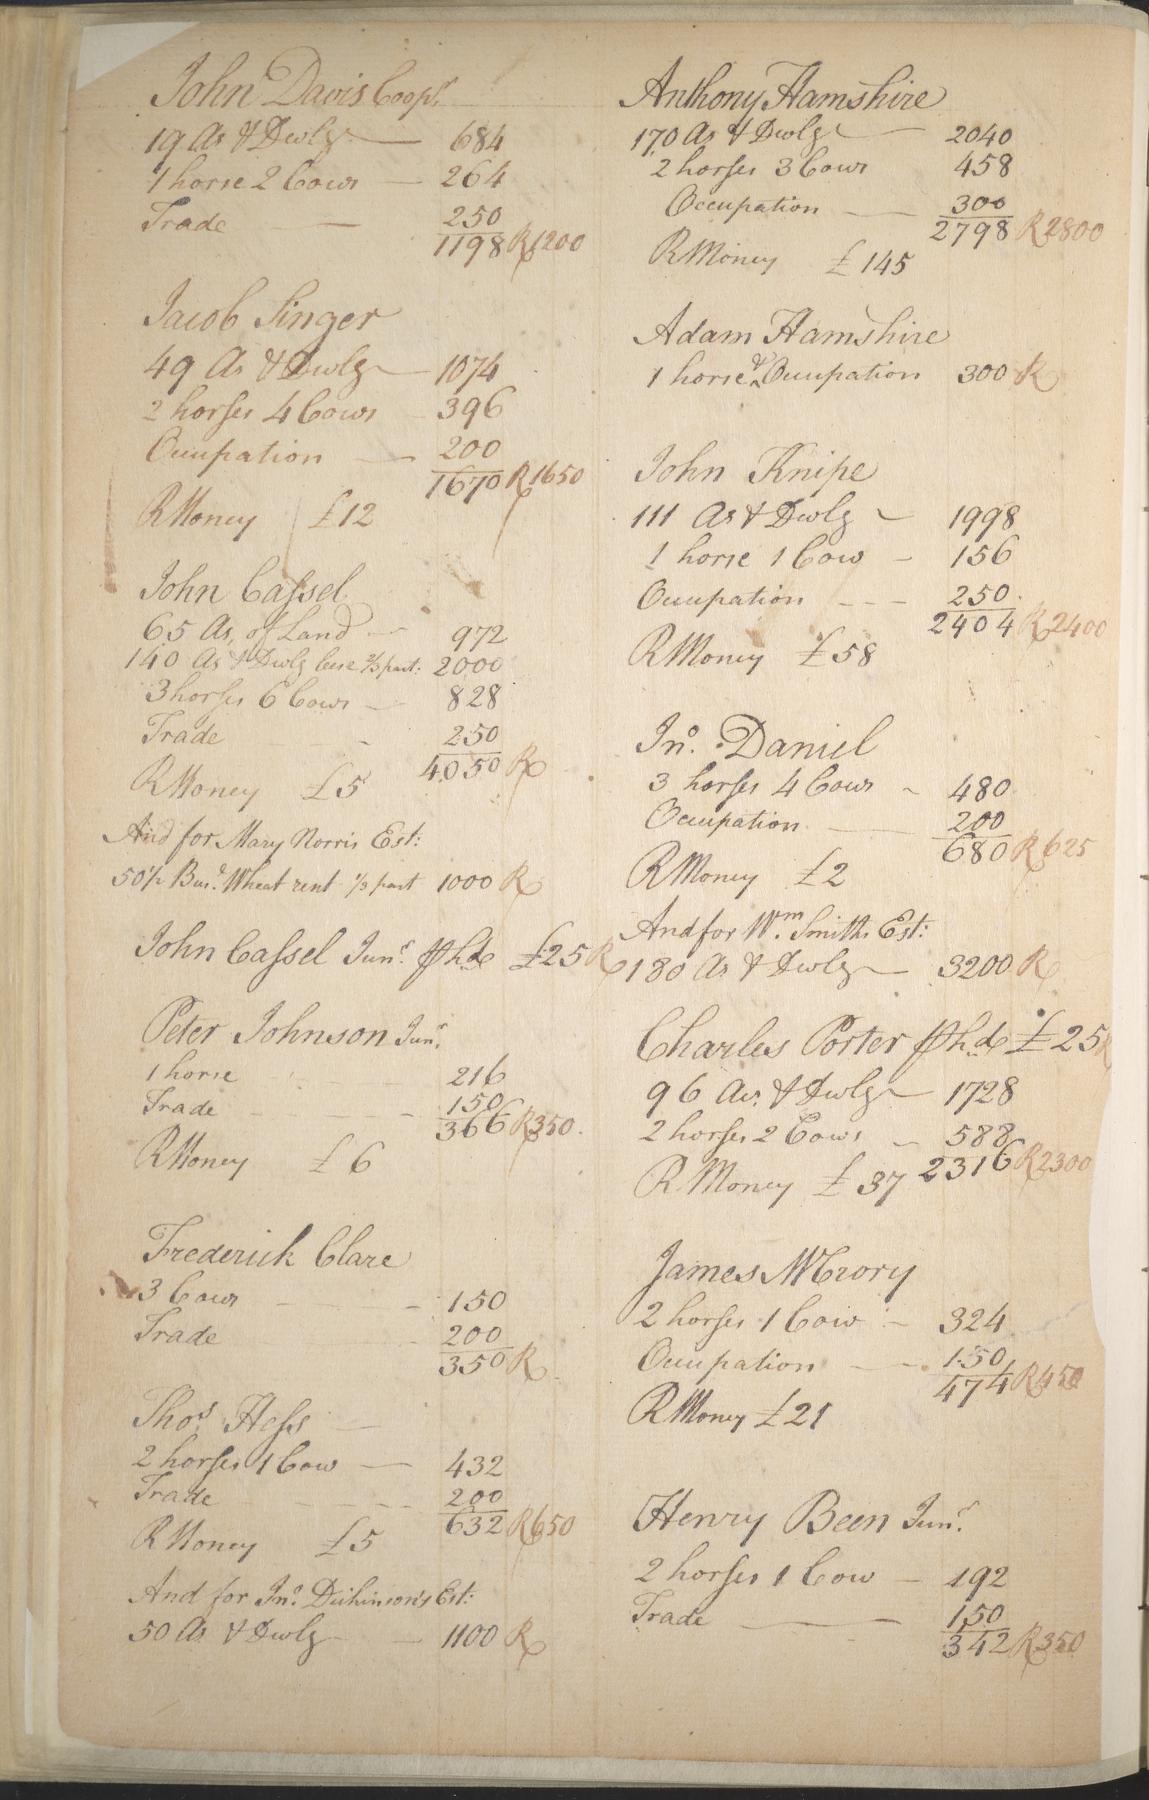 John Davis Coopr.
19 As & Dwlg — 684
1 horse 2 Cows — 264
Trade — 250
1198 R 1200
Jacob Singer
49 As & Dwlg — 1074
2 horses 4 Cows 396
Occupation — 200
1670 R 1650
R Money £12
John Cassel
65 As. of Land — 972
140 As & Dwlg 2/3 part: 2000
3 horses 6 Cows — 828
Trade - 250
4050 R
R Money £5
And for Mary Norris Est:
50 1/2 Bus. Wheat rent 1/3 part 1000 R
John Cassel Junr. £25 R
Peter Johnson Junr.
1 horse 216
Trade - - - 150
366 R 350.
R Money £6
Frederick Clare
3 Cows — - 150
Trade - 200
350 R
Thos. Hess —
2 horses 1 Cow — 432
Trade - - - - 200
632 R 650
R Money £5
And for Jno. Dickinson's Est:
50 As & Dwlg — 1100 R
Anthony Hamshire
170 As & Dwlg — 2040
2 horses 3 Cows 458
Occupation — 300
2798 R 2800
R Money £145
Adam Hamshire
1 horse & Occupation 300 R
John Knipe
111 As & Dwlg ~ 1998
1 horse 1 Cow - 156
Occupation - - - 250
2404 R 2400
R Money £58
Jno. Daniel
3 horses 4 Cows ~ 480
Occupation — 200
680 R 625
R Money £2
And for Wm. Smith Est:
180 As & Dwlg — 3200 R
Charles Porter £25 R
96 As. & Dwlg — 1728
2 horses 2 Cows ~ 588
2316 R 2300
R Money £37
James McCrory
2 horses 1 Cow - 324
Occupation — 150
474 R 450
R Money £21
Henry Been Junr.
2 horses 1 Cow — 192
Trade — 150
342 R 350